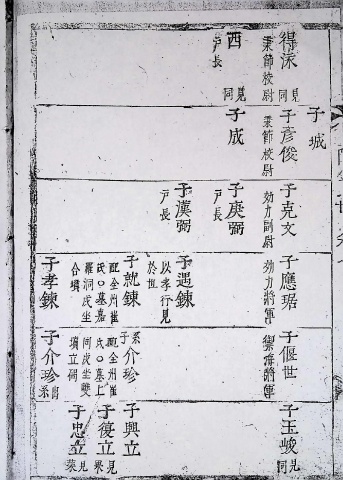 得洙 見同
秉節校尉
酉 見同
戶長
子城
子彥俊
秉節校尉
子成
子克文
効力副尉
子庚弼
戶長
子漢弼
戶長
子應琚
効力將軍
子遇鍊
以孝行見
於世
子就鍊
配全州崔
氏○墓嘉
羅洞戌坐
合墳
子孝鍊
子偃世
禦侮將軍
系子介珍
配全州崔
氏○墓上
同戌坐雙
墳立碣
子介珍 出系
子玉峻 見同
子興立
子復立 見
子忠立 見